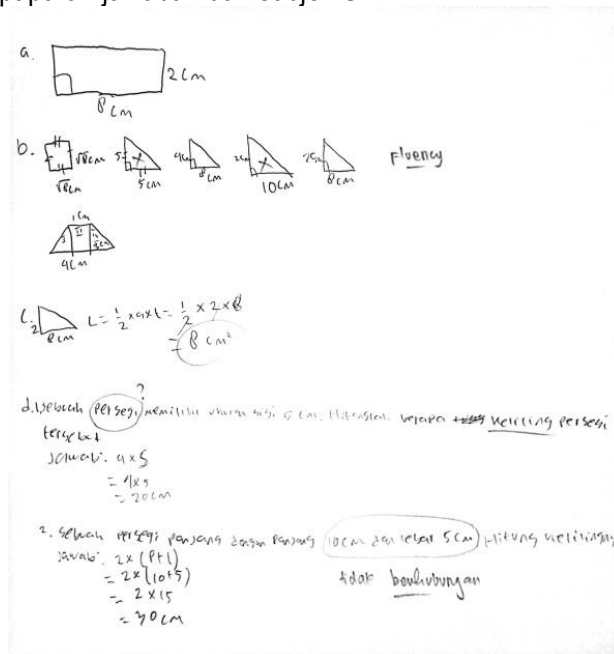 a.
2 cm
8 cm
b.
√8 cm
√8 cm
5
5 cm
8 cm
10 cm
8 cm
Fluency
1 cm
4 cm
c.
2
8 cm
L = 1/2 × a × t = 1/2 × 2 × 8
= 8 cm²
?
d. 1. sebuah persegi memiliki ukuran sisi 5 cm. Hitunglah berapa keliling persegi
tersebut
Jawab: 4 × S
= 4 × 5
= 20 cm
2. sebuah persegi panjang dengan panjang 10 cm dan lebar 5 cm Hitung kelilingnya
Jawab: 2 × (P + l)
= 2 × (10 + 5)
= 2 × 15
= 30 cm
tidak berhubungan